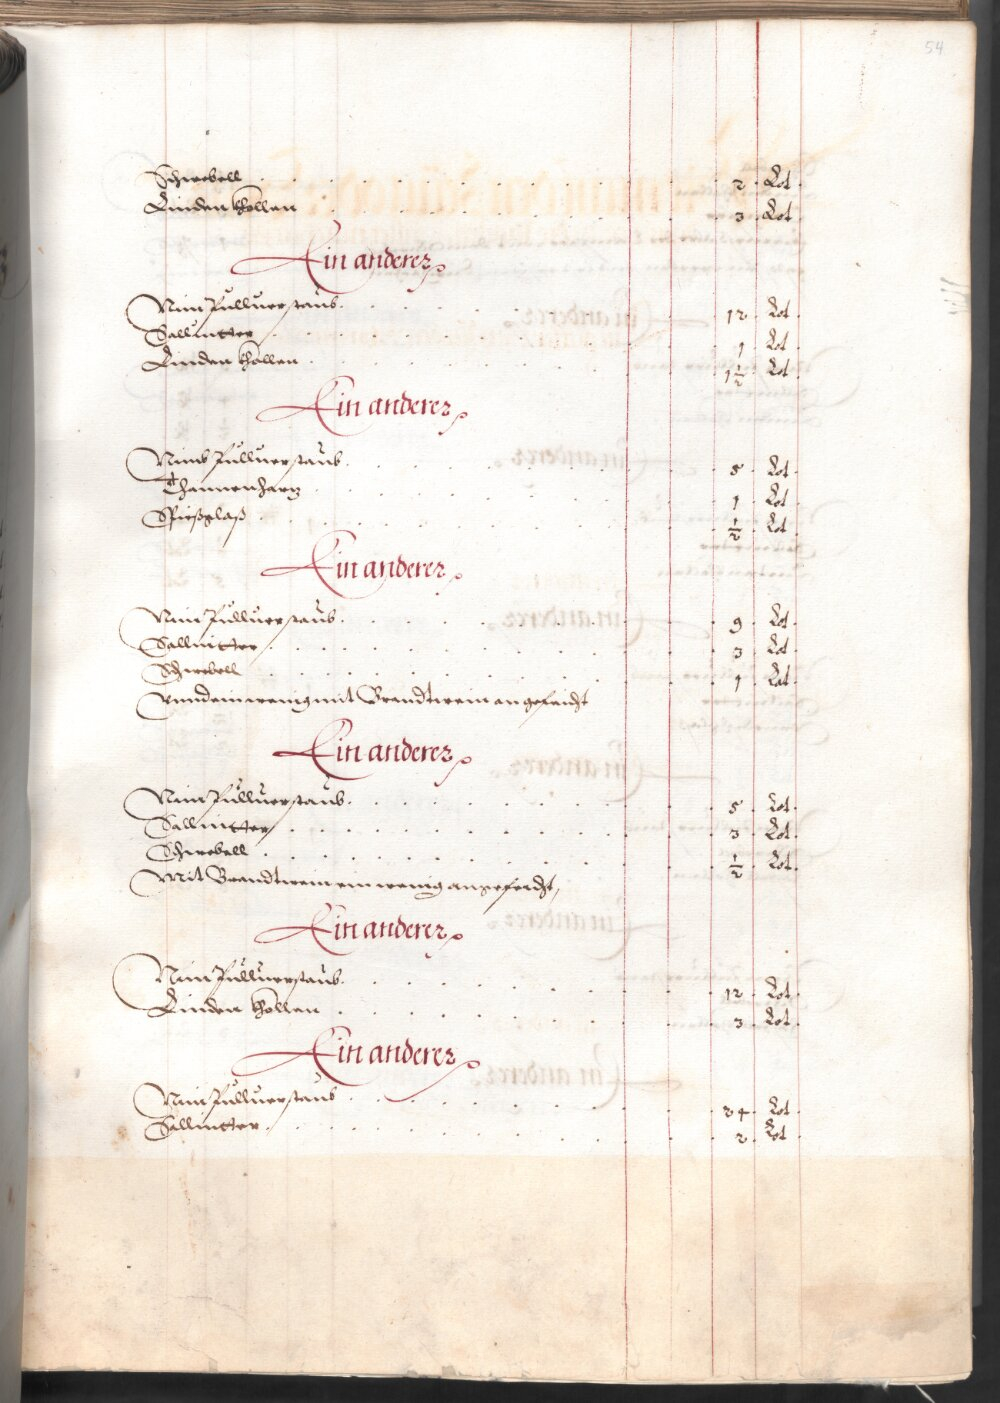 54
Schwebell . . . . . . . . . . . 2 . Lot .
Linden khollen . . . . . . . . . 3 . Lot .
Ein anderer
Nim Pulluerstaub . . . . . . . . 12 . Lot .
Sallnitter . . . . . . . . . . . 1 . Lot .
Linden khollen . . . . . . . . . 1½ . Lot .
Ein anderer
Nimb Pulluerstaub . . . . . . . . 5 . Lot .
Thannenhartz . . . . . . . . . . 1 . Lot .
Spießglaß . . . . . . . . . . . ½ . Lot .
Ein anderer
Nim Pulluerstaub . . . . . . . . 9 . Lot .
Sallnitter . . . . . . . . . . . 3 . Lot .
Schwebell . . . . . . . . . . . 1 . Lot .
Vnnd ein wenig mit Brandtwein angefeicht
Ein anderer
Nim Pulluerstaub . . . . . . . . 5 . Lot .
Sallnitter . . . . . . . . . . . 3 . Lot .
Schwebell . . . . . . . . . . . ½ . Lot .
Mit Brandtwein ein wenig angefeicht,
Ein anderer
Nim Pulluerstaub . . . . . . . . 12 . Lot .
Linden khollen . . . . . . . . . 3 . Lot .
Ein anderer
Nim Pulluerstaub . . . . . . . . 24 . Lot .
Sallnitter . . . . . . . . . . . 2 . Lot .